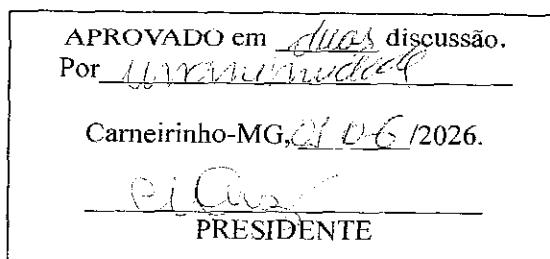 APROVADO em duas discussão.
Por unanimidade
Carneirinho-MG, 01 06 /2026.
PRESIDENTE